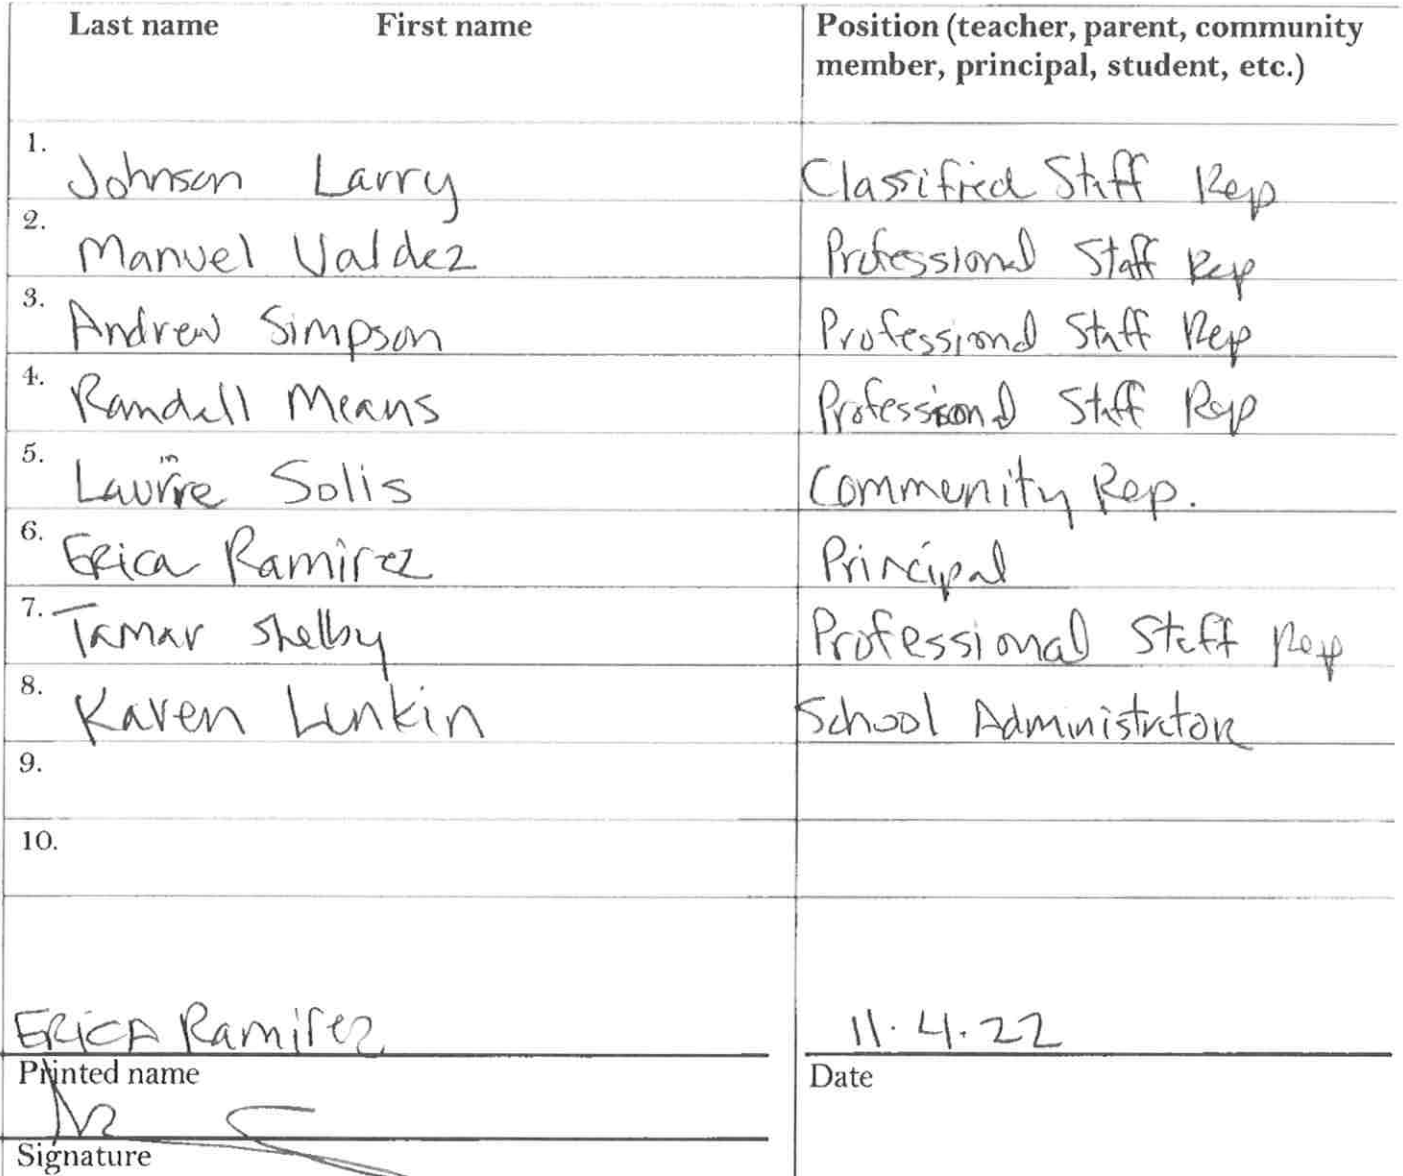 Last name First name Position (teacher, parent, community
member, principal, student, etc.)
1. Johnson Larry Classified Staff Rep
2. Manuel Valdez Professional Staff Rep
3. Andrew Simpson Professional Staff Rep
4. Randall Means Professional Staff Rep
5. Solis Community Rep.
6. Erica Ramirez Principal
7. Tamar Shelby Professional Staff Rep
8. Karen Lunkin School Administrator
9.
10.
Erica Ramirez 11.4.22
Printed name Date
Signature